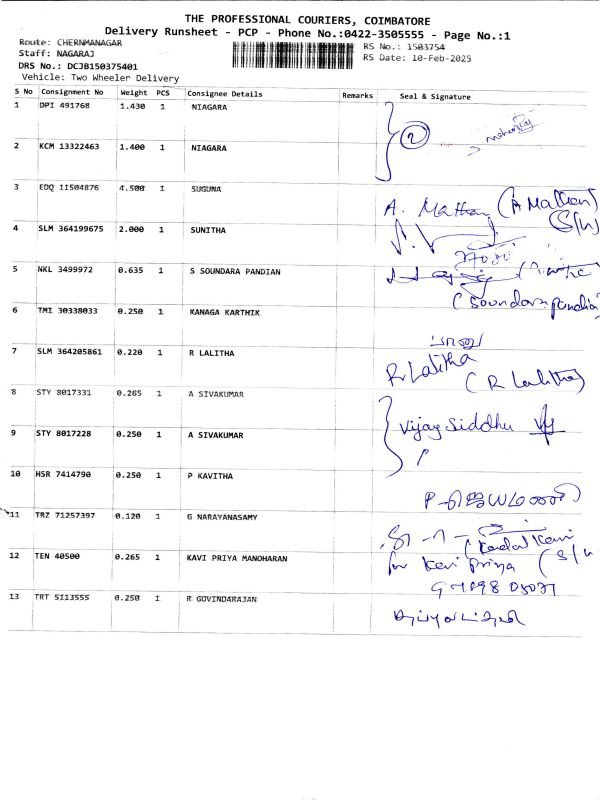 THE PROFESSIONAL COURIERS, COIMBATORE
Delivery Runsheet - PCP - Phone No.:0422-3505555 - Page No.:1
Route: CHERNMANAGAR
RS No.: 1503754
Staff: NAGARAJ
RS Date: 10-Feb-2025
DRS No.: DCJB150375401
Vehicle: Two Wheeler Delivery
S No Consignment No Weight PCS Consignee Details Remarks Seal & Signature
1 DPI 491768 1.430 1 NIAGARA
2
2 KCM 13322463 1.400 1 NIAGARA
3 EDQ 11504876 4.500 1 SUGUNA
A. Mathan (A Mathan)
(S/w)
4 SLM 364199675 2.000 1 SUNITHA
5 NKL 3499972 0.635 1 S SOUNDARA PANDIAN
(Soundarapandia
6 TMI 30338033 0.250 1 KANAGA KARTHIK
7 SLM 364205861 0.220 1 R LALITHA
R. Lalitha
(R Lalitha)
8 STY 8017331 0.265 1 A SIVAKUMAR
Vijay Siddhu
9 STY 8017228 0.250 1 A SIVAKUMAR
10 HSR 7414790 0.250 1 P KAVITHA
11 TRZ 71257397 0.120 1 G NARAYANASAMY
12 TEN 40500 0.265 1 KAVI PRIYA MANOHARAN
for Kavi priya (S/w
13 TRT 5113555 0.250 1 R GOVINDARAJAN